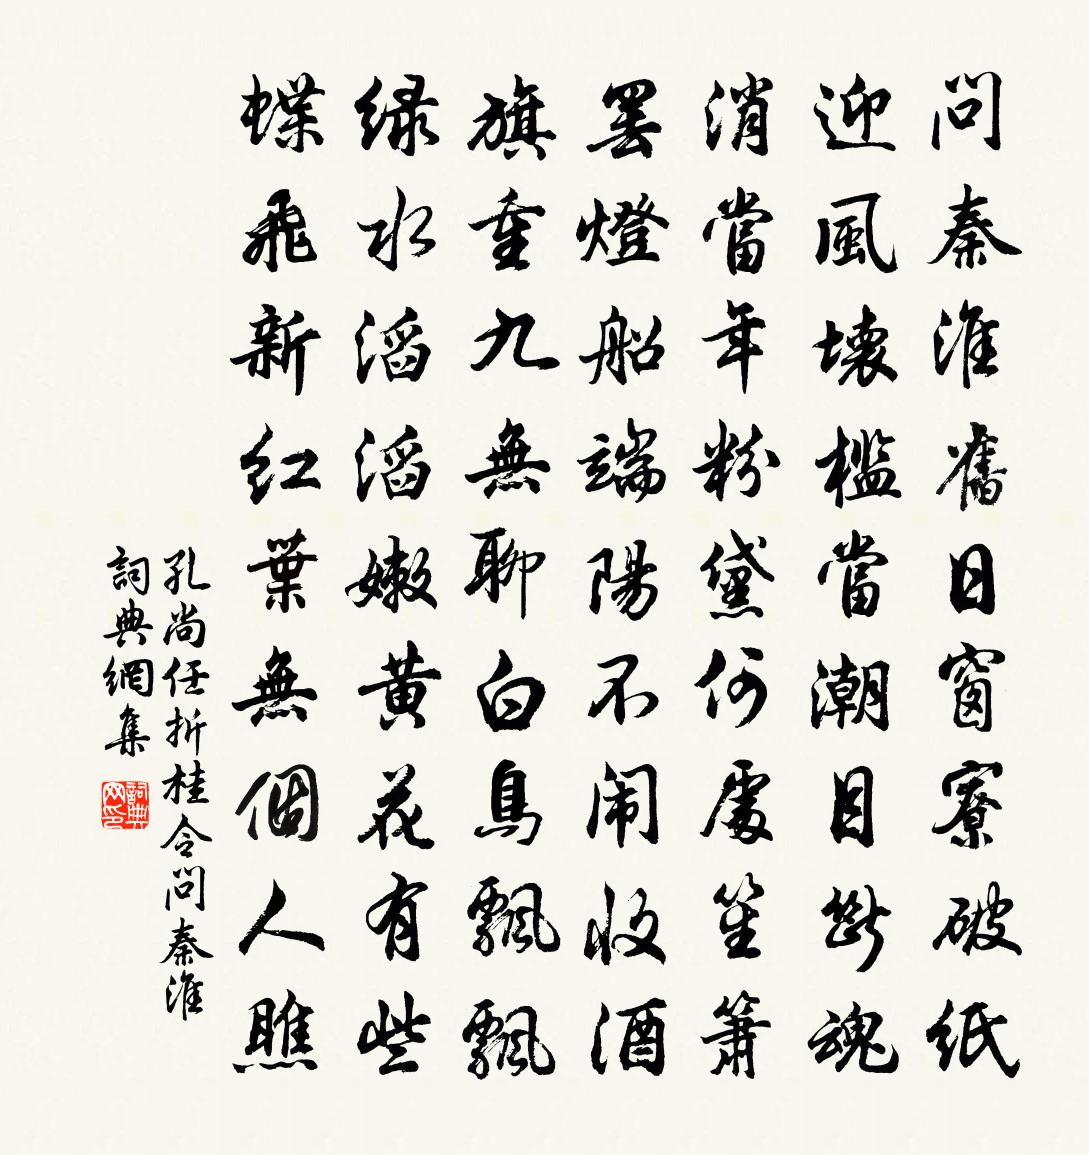 問秦淮舊日窗寮破紙
迎風壞檻當潮目斷魂
消當年粉黛何處笙簫
罢燈船端陽不闹收酒
旗重九無聊白鳥飄飄
緑水滔滔嫩黃花有些
蝶飛新红葉無個人瞧
孔尚任折桂令問秦淮
詞典網集
詞典网印